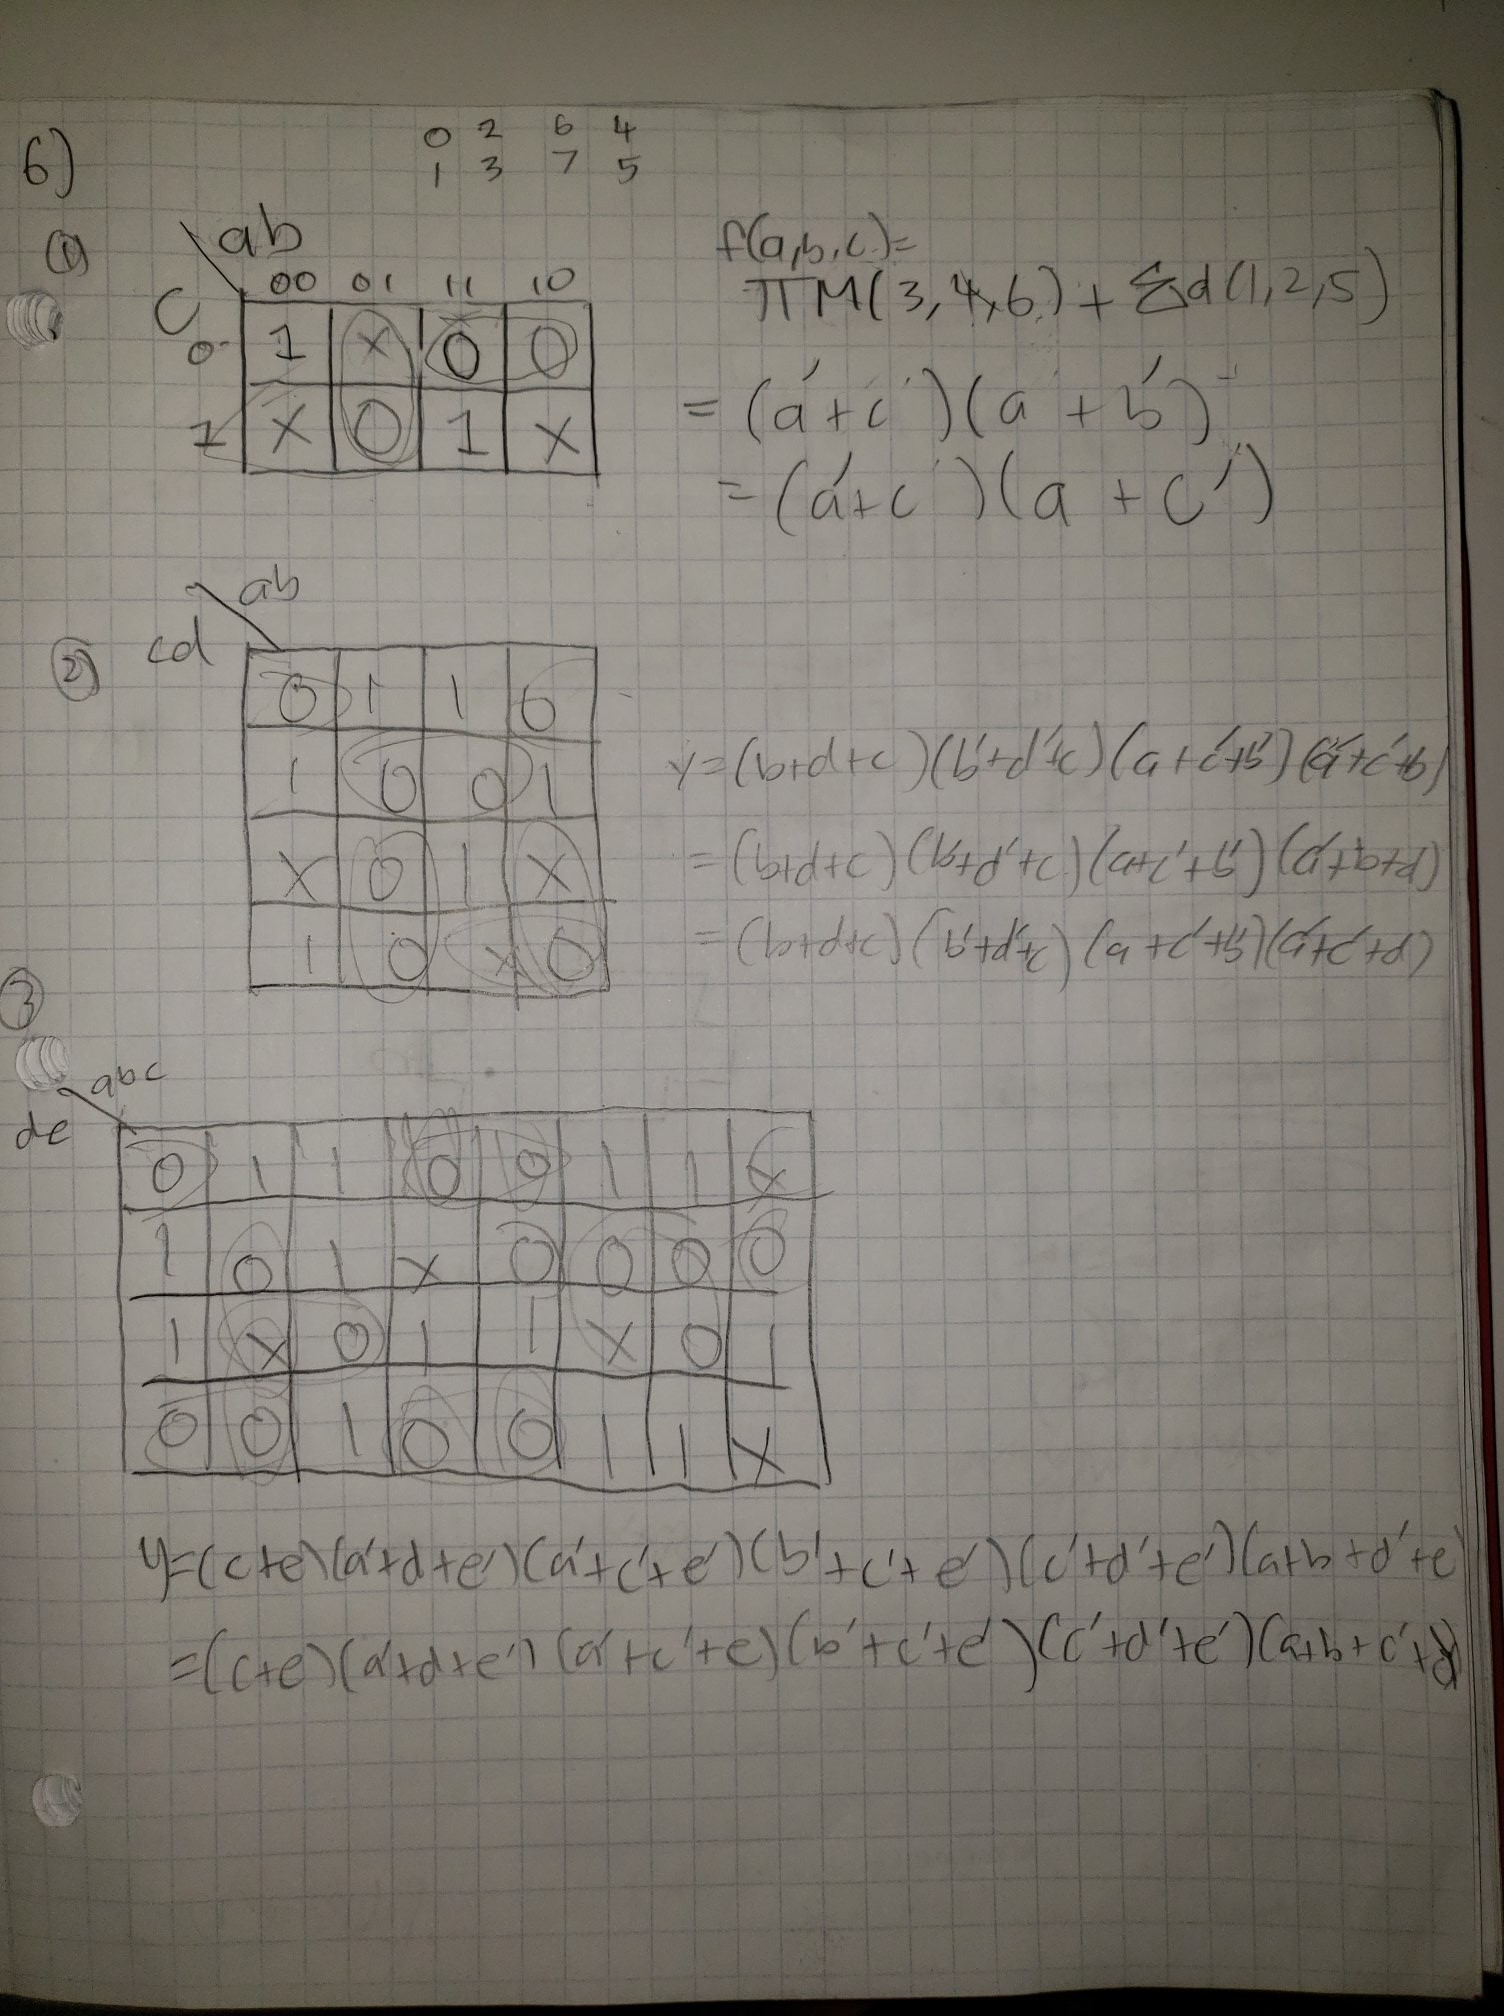 6)
0 2 6 4
1 3 7 5
(1)
ab
C
00 01 11 10
0 1 X 0 0
1 X 0 1 X
f(a,b,c)=
πM(3,4,6) + Σd(1,2,5)
= (a'+c)(a + b')
= (a'+c)(a + c')
(2)
ab
cd
0 1 1 0
1 0 0 1
X 0 1 X
1 0 X 0
Y=(b+d+c)(b'+d'+c)(a+c'+b')(a'+c'+b)
=(b+d+c)(b'+d'+c)(a+c'+b')(a'+b+d)
=(b+d+c)(b'+d'+c)(a+c'+b')(a'+c'+d)
(3)
abc
de
0 1 1 0 0 1 1 X
1 0 1 X 0 0 0 0
1 X 0 1 1 X 0 1
0 0 1 0 0 1 1 X
y=(c+e)(a'+d+e')(a'+c'+e')(b'+c'+e')(c'+d'+e')(a+b+d'+e)
=(c+e)(a'+d+e')(a'+c'+e)(b'+c'+e')(c'+d'+e')(a+b+c'+d')